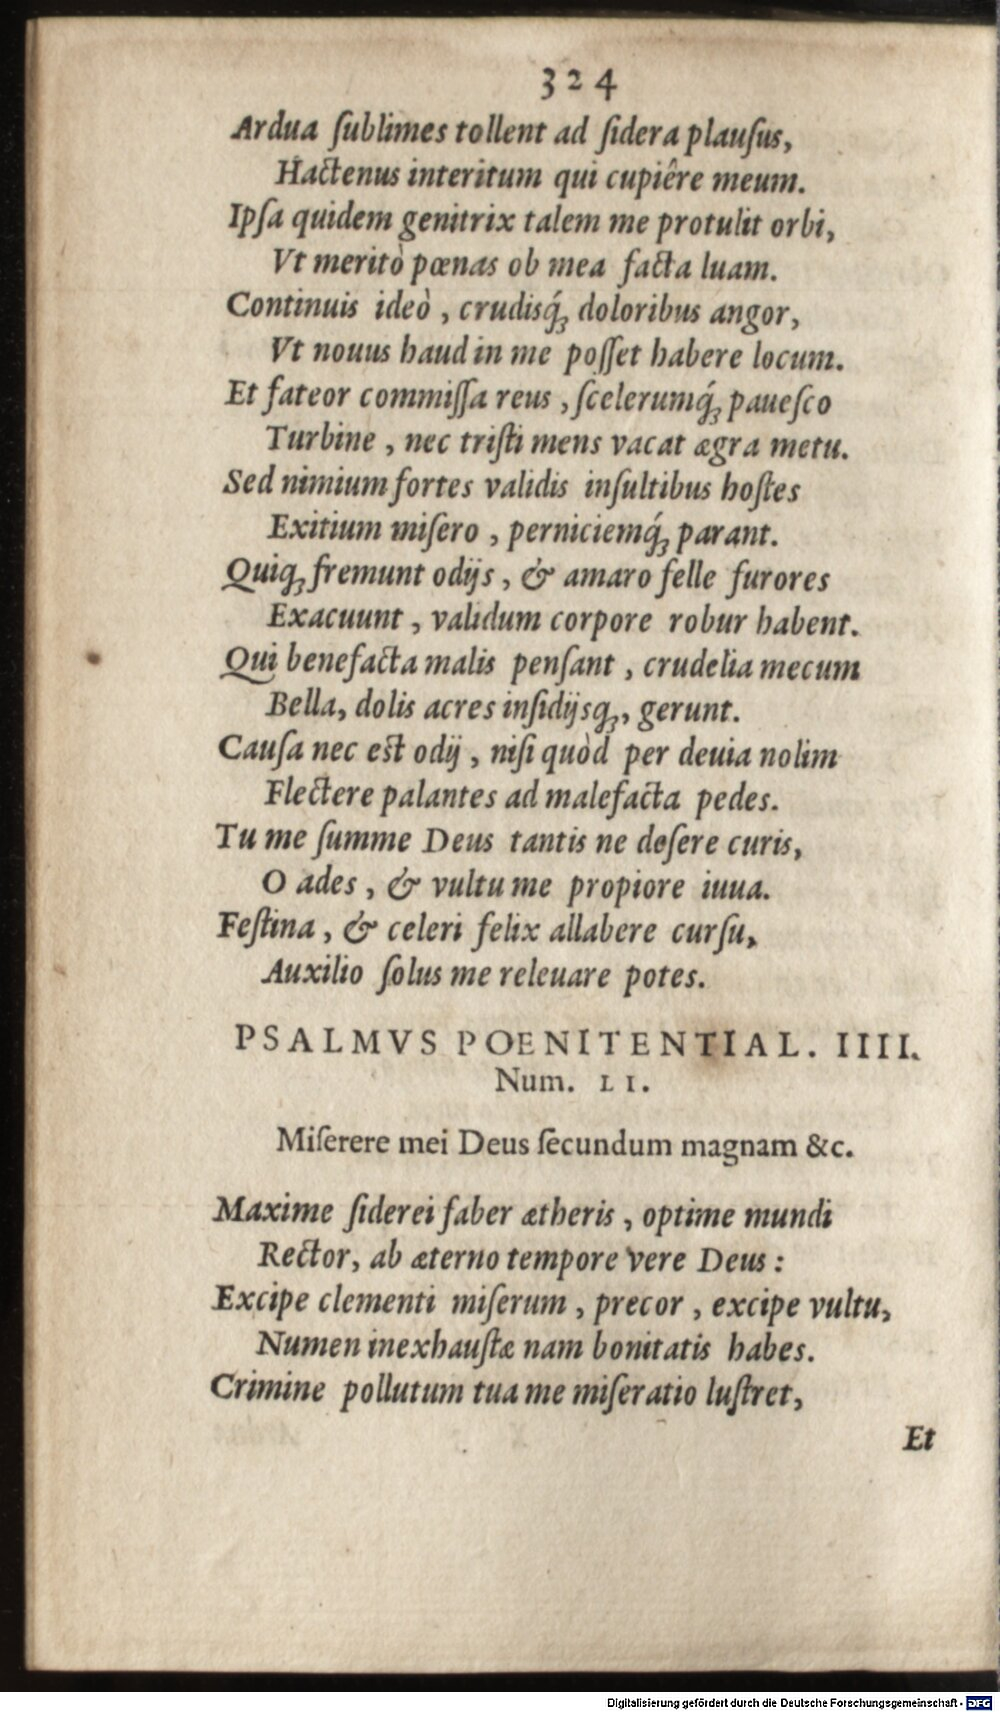 324
Ardua ſublimes tollent ad ſidera plauſus,
Hactenus interitum qui cupiêre meum.
Ipſa quidem genitrix talem me protulit orbi,
Vt meritò pœnas ob mea facta luam.
Continuis ideò, crudisq́ꝫ doloribus angor,
Vt nouus haud in me poſſet habere locum.
Et fateor commiſſa reus, ſcelerumq́ꝫ paueſco
Turbine, nec triſti mens vacat ægra metu.
Sed nimium fortes validis inſultibus hoſtes
Exitium miſero, perniciemq́ꝫ parant.
Quiqꝫ fremunt odijs, & amaro felle furores
Exacuunt, validum corpore robur habent.
Qui benefacta malis penſant, crudelia mecum
Bella, dolis acres inſidijsqꝫ, gerunt.
Cauſa nec est odij, niſi quòd per deuia nolim
Flectere palantes ad malefacta pedes.
Tu me ſumme Deus tantis ne deſere curis,
O ades, & vultu me propiore iuua.
Feſtina, & celeri felix allabere curſu,
Auxilio ſolus me releuare potes.
PSALMVS POENITENTIAL. IIII.
Num. LI.
Miſerere mei Deus ſecundum magnam &c.
Maxime ſiderei faber ætheris, optime mundi
Rector, ab æterno tempore vere Deus:
Excipe clementi miſerum, precor, excipe vultu,
Numen inexhauſtæ nam bonitatis habes.
Crimine pollutum tua me miſeratio luſtret,
Et
Digitalisierung gefördert durch die Deutsche Forschungsgemeinschaft - DFG